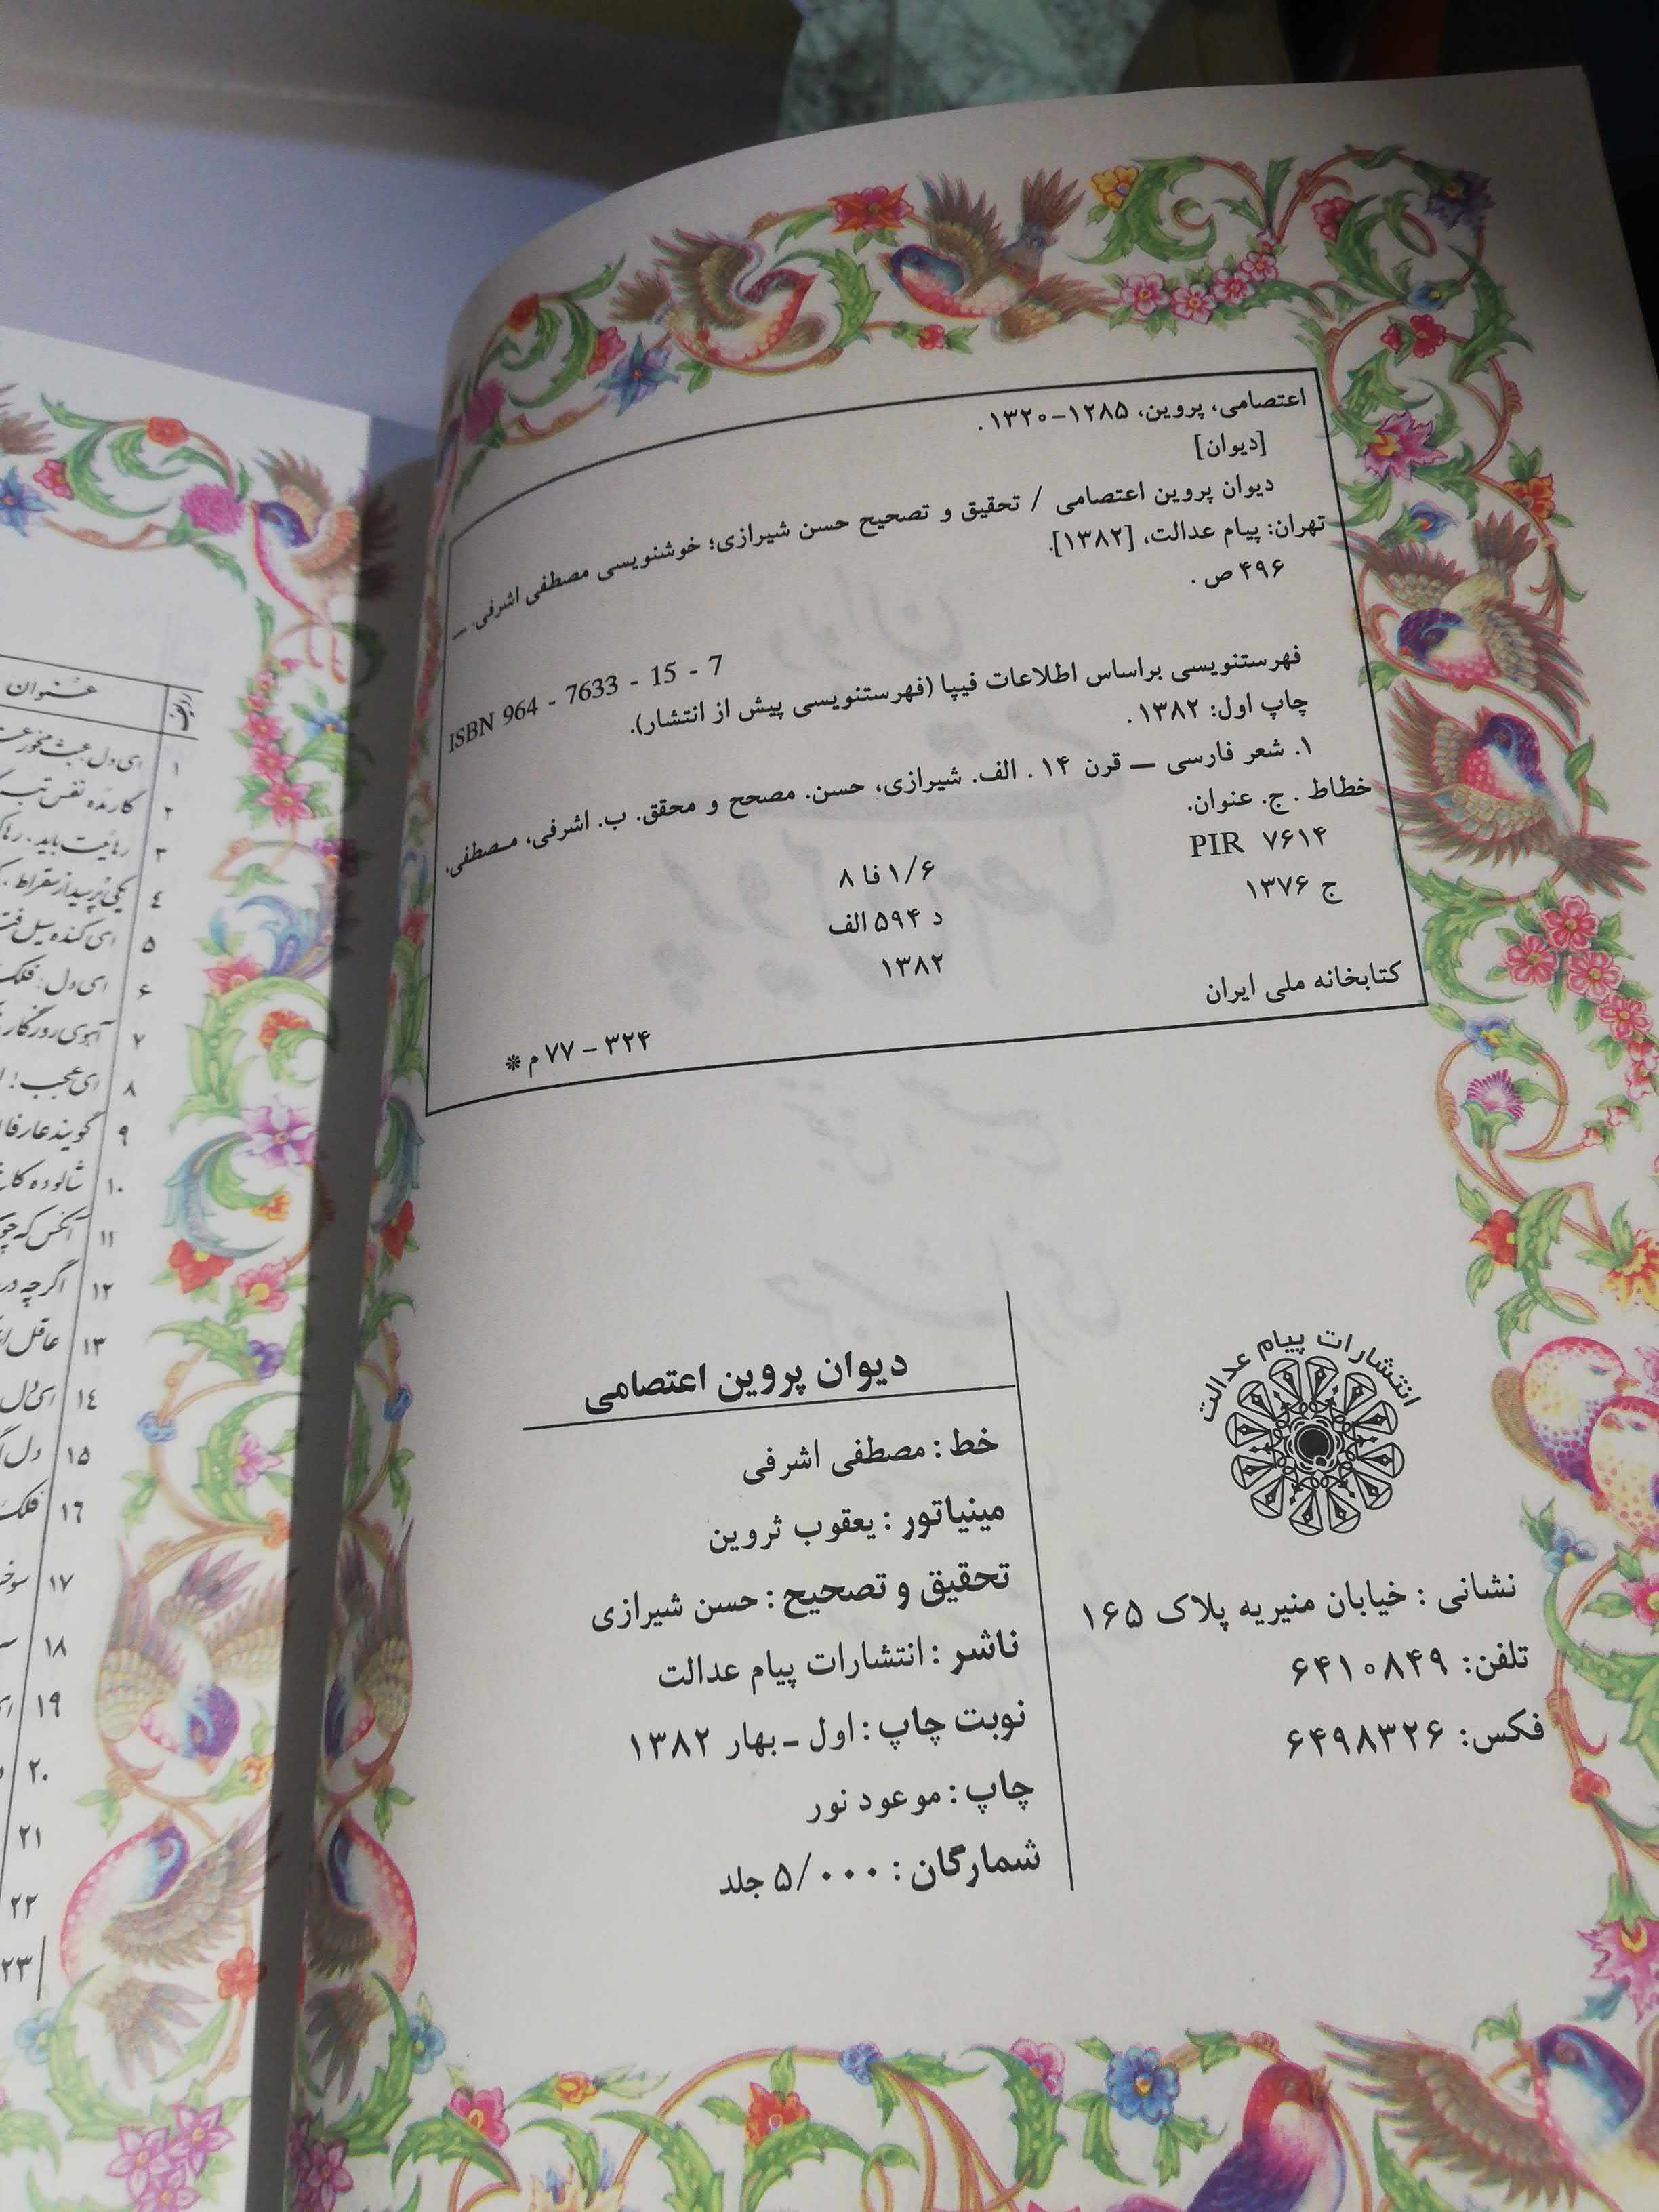 اعتصامی، پروین، ۱۲۸۵-۱۳۲۰.
[دیوان]
دیوان پروین اعتصامی / تحقیق و تصحیح حسن شیرازی؛ خوشنویسی مصطفی اشرفی. ـــ
تهران: پیام عدالت، [۱۳۸۲].
۴۹۶ ص.
ISBN 964 - 7633 - 15 - 7
فهرستنویسی براساس اطلاعات فیپا (فهرستنویسی پیش از انتشار).
چاپ اول: ۱۳۸۲.
۱. شعر فارسی ـــ قرن ۱۴. الف. شیرازی، حسن. مصحح و محقق. ب. اشرفی، مصطفی،
خطاط. ج. عنوان.
PIR ۷۶۱۴
۸ فا ۱/۶
ج ۱۳۷۶
د ۵۹۴ الف
۱۳۸۲
کتابخانه ملی ایران
۳۲۴ - ۷۷ م *
انتشارات پیام عدالت
نشانی : خیابان منیریه پلاک ۱۶۵
تلفن: ۶۴۱۰۸۴۹
فکس: ۶۴۹۸۳۲۶
دیوان پروین اعتصامی
خط : مصطفی اشرفی
مینیاتور : یعقوب ثروین
تحقیق و تصحیح : حسن شیرازی
ناشر : انتشارات پیام عدالت
نوبت چاپ : اول ـ بهار ۱۳۸۲
چاپ : موعود نور
شمارگان : ۵/۰۰۰ جلد
ردیف عنوان
۱ ای دل عبث مخور
۲ کار مده نفس
۳ رهائیت باید
۴ یکی پرسید از سقراط
۵ ای کنده سیل
۶ ای دل، فلک
۷ آهوی روزگار
۸ ای عجب!
۹ گویند عارفان
۱۰ شالوده کاخ
۱۱ آنکس که چو
۱۲ اگر چه در
۱۳ عاقل
۱۴ ای دل
۱۵ دل
۱۶ فلک
۱۷
۱۸
۱۹
۲۰
۲۱
۲۲
۲۳